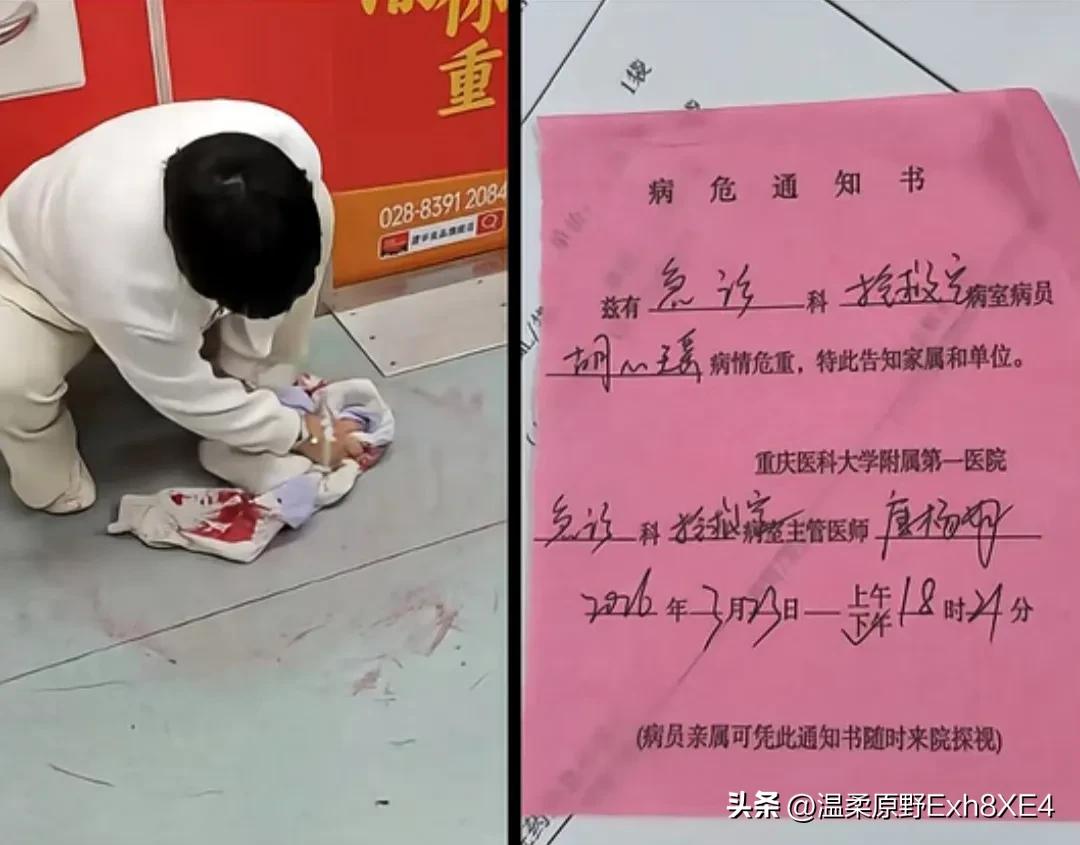 重
028-8391 2084
1袋
病危通知书
兹有 急诊 科 抢救室 病室病员
胡心瑶 病情危重，特此告知家属和单位。
重庆医科大学附属第一医院
急诊 科 抢救室 病室主管医师
2026 年 3 月 23 日 — 上午
下午 18 时 21 分
(病员亲属可凭此通知书随时来院探视)
头条 @温柔原野Exh8XE4